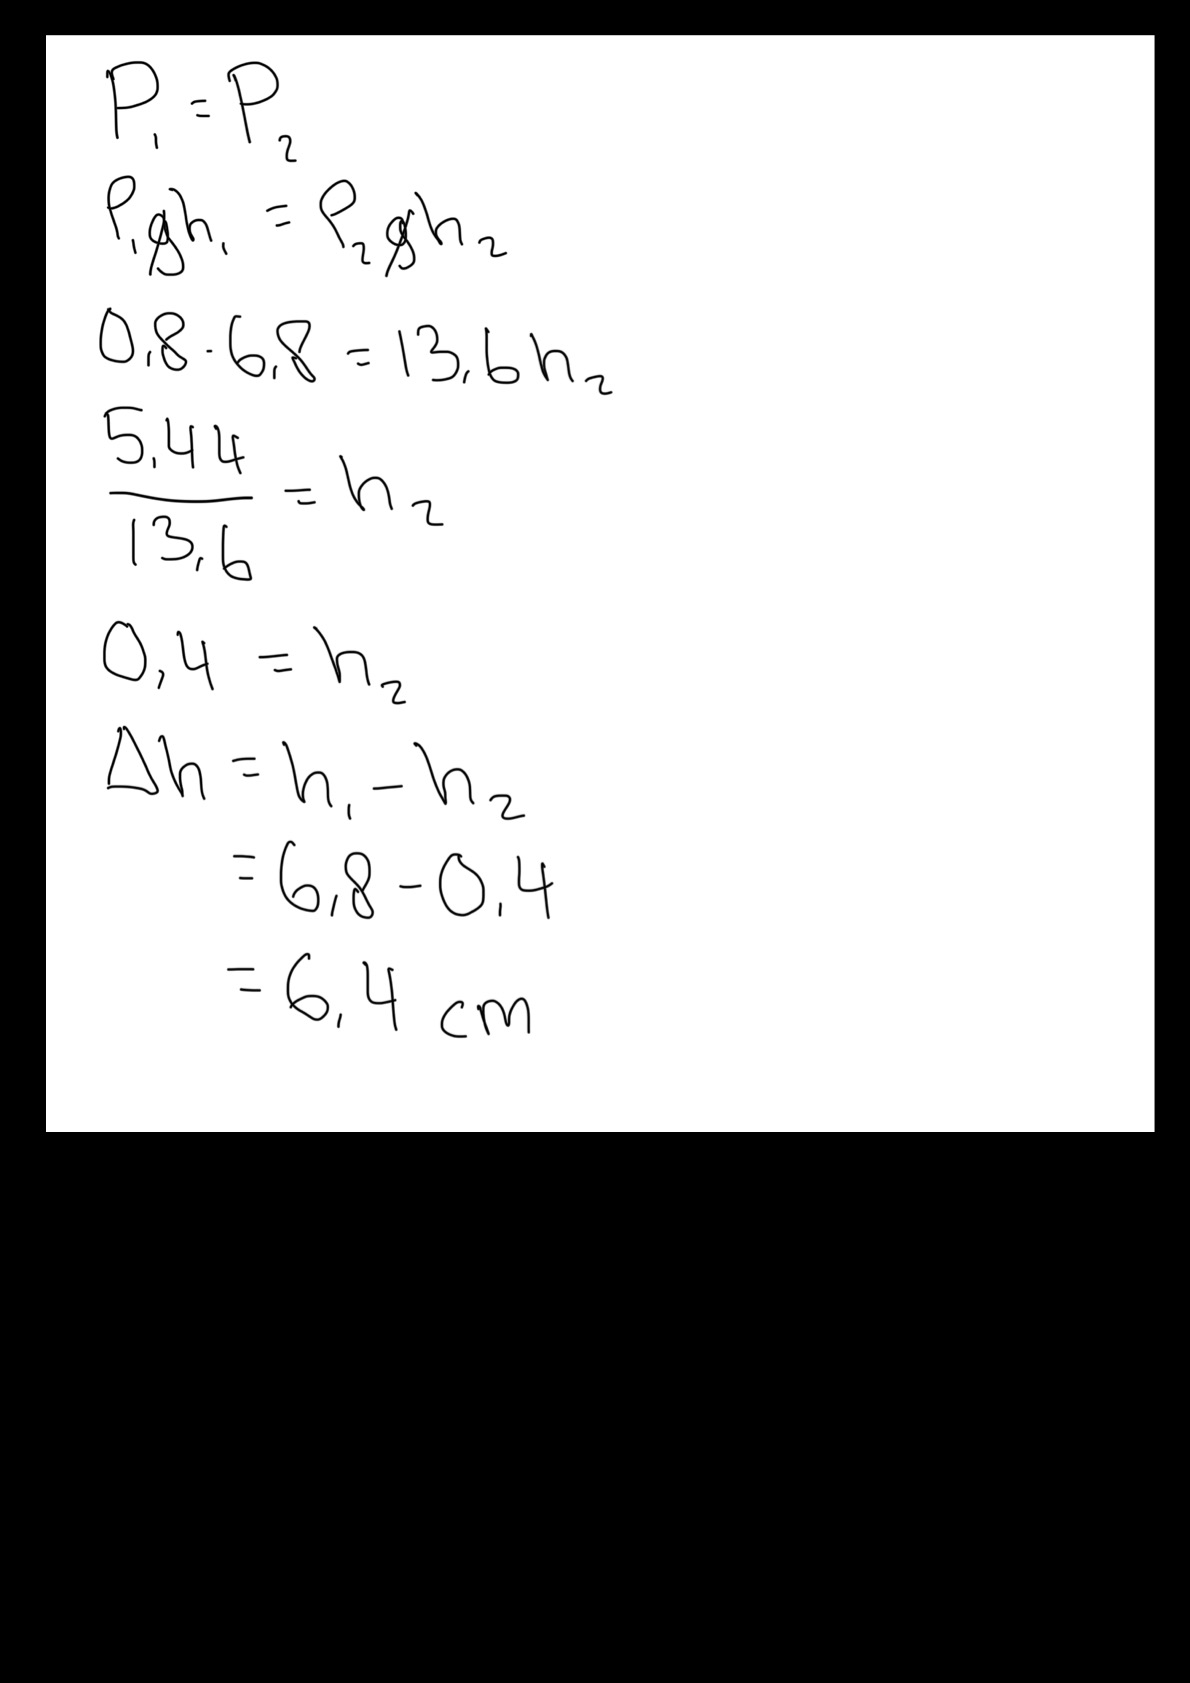 P₁ = P₂
ρ₁gh₁ = ρ₂gh₂
0,8 · 6,8 = 13,6h₂
5,44/13,6 = h₂
0,4 = h₂
Δh = h₁ − h₂
= 6,8 − 0,4
= 6,4 cm